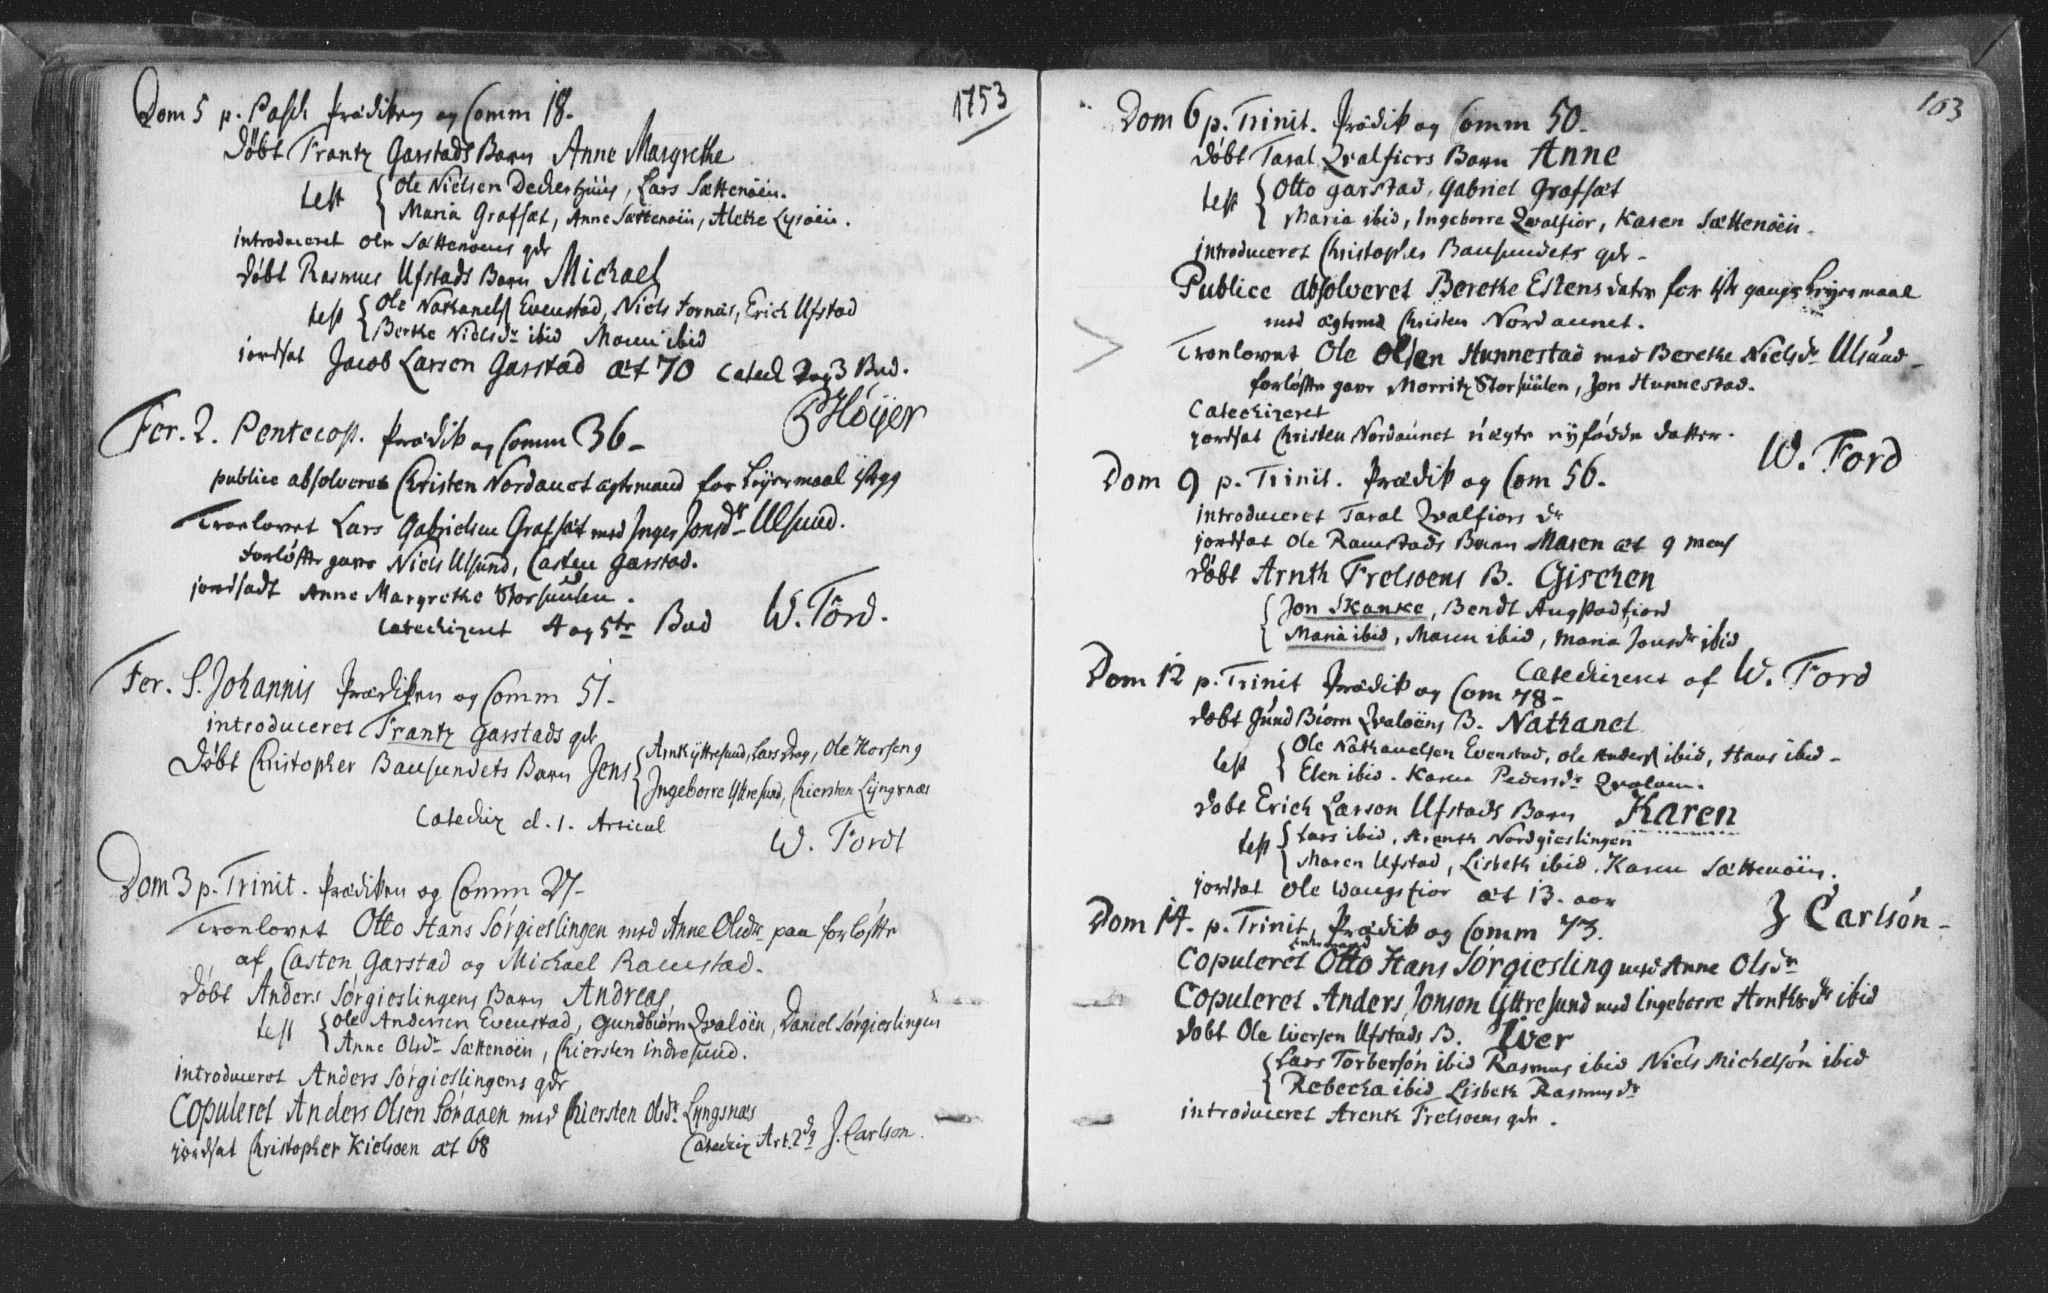 1753
Dom 5 p. Pasch Prædiken og Comm 18.
Døbt Frantz Garstads Barn Anne Margrethe
test Ole Nielsen Deckerhuus, Lars Sættenøen.
Maria Grafsæt, Anne Sættenøen, Alethe Lysøen.
introduceret Ole Sættenøens qde
Døbt Rasmus Ufstads Barn Michael
test Ole Nathanels Evenstad, Niels Fornæs, Erich Ufstad
Berthe Nielsdr ibid Maren ibid
jordsat Jacob Larsen Garstad æt 70 Catech 2 og 3 Bud.
P Høyer
Fer. 2. Pentecost. Prædik og Comm 36
publice absolveret Christen Nordanet ægtemand for Leyermaal
Troelovet Lars Gabrielsen Grafsæt med Inger Jonsdr Ulsund.
forløftr gave Niels Ulsund, Casten Garstad.
jordsadt Anne Margrethe Storsuulen.
Catechizeret 4 og 5te Bud W. Ford.
Fer. S. Johannis Prædiken og Comm 51
introduceret Frantz Garstads qde
Døbt Christopher Bausundets Barn Jens Arnt Yttresund, Lars Drag, Ole Horseng
Ingeborre Yttresund, Chiersten Lyngsnæs
Catechiz d. 1. Articul
W. Fordt
Dom 3 p. Trinit. Prædiken og Comm 27
Troelovet Otto Hans Sørgieslingen med Anne Olsdr paa forløfte
af Casten Garstad og Michael Ramstad.
Døbt Anders Sørgieslingens Barn Andreas
test Ole Andersen Evenstad, Gundbiørn Qvaløen, Daniel Sørgieslingen
Anne Olsdr Sættenøen, Chiersten Indresund.
introduceret Anders Sørgieslingens qde
Copuleret Anders Olsen Søraaen med Chiersten Olsdr Lyngsnæs
jordsat Christopher Kielsøen æt 68 Catechiz Art. 2d J. Carlson.
103
Dom 6 p. Trinit. Prædik og Comm 50
Døbt Taral Qvalfiors Barn Anne
test Otto Garstad, Gabriel Grafsæt
Maria ibid, Ingeborre Qvalfior, Karen Sættenøen
introduceret Christopher Bausundets qde
Publice absolveret Berethe Estens dater for 1ste gangs Leyermaal
med ægtemd Christen Nordaunet.
Troelovet Ole Olsen Hunnestad med Berethe Nielsdr Ulsund
forløfte gave Morritz Storsuulen, Jon Hunnestad.
Catechizeret
jordsat Christen Nordaunet uægte nyfødde datter.
W. Ford
Dom 9 p. Trinit. Prædik og Com 56.
introduceret Taral Qvalfiors qde
jordsat Ole Ramstads Barn Maren æt 9 mens
Døbt Arnth Frelsøens B. Gischen
Jon Skanke, Bendt Augstadfiord
Maria ibid, Maren ibid, Maria Jonsdr ibid
Catechizeret af W. Ford
Dom 12 p. Trinit Prædik og Com 78
Døbt Gundbiørn Qvaløens B. Nathanel
test Ole Nathanelsen Evenstad, Ole Anders ibid, Hans ibid
Elen ibid. Karen Pedersdr Qvaløen.
Døbt Erich Larson Ufstads Barn Karen
test Lars ibid, Arenth Nordgieslingen
Maren Ufstad, Lisbeth ibid. Karen Sættenøen.
jordsat Ole Wangsfior æt 13. aar
J Carlsøn
Dom 14. p. Trinit, Prædik og Comm 73.
Enkemand
Copuleret Otto Hans Sørgiesling med Anne Olsdr
Copuleret Anders Jonson Yttresund med Ingeborre Arnthsdr ibid
Døbt Ole Iversen Ufstads B. Iver
Lars Torbersøn ibid Rasmus ibid Niels Michelsøn ibid
Rebecha ibid Lisbeth Rasmusdr
introduceret Arenth Frelsøens qde.